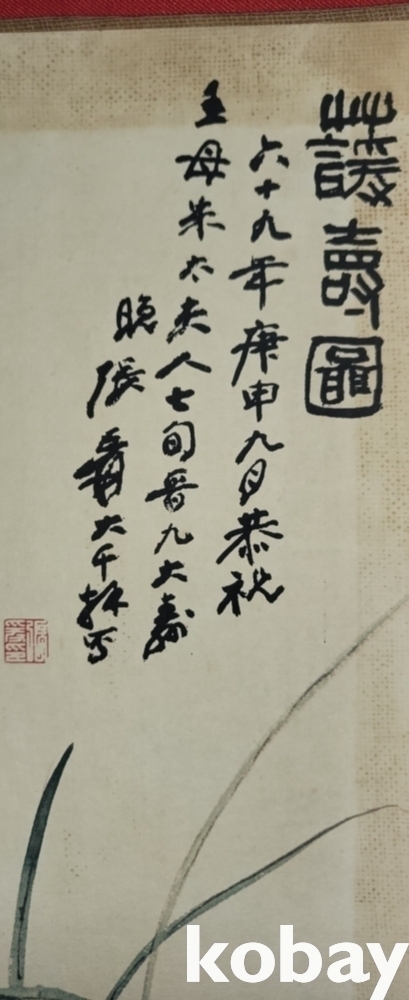 護壽圖
六十九年庚申九月恭祝
王母朱太夫人七旬晉九大壽
晚張爰大千拜寫
kobay